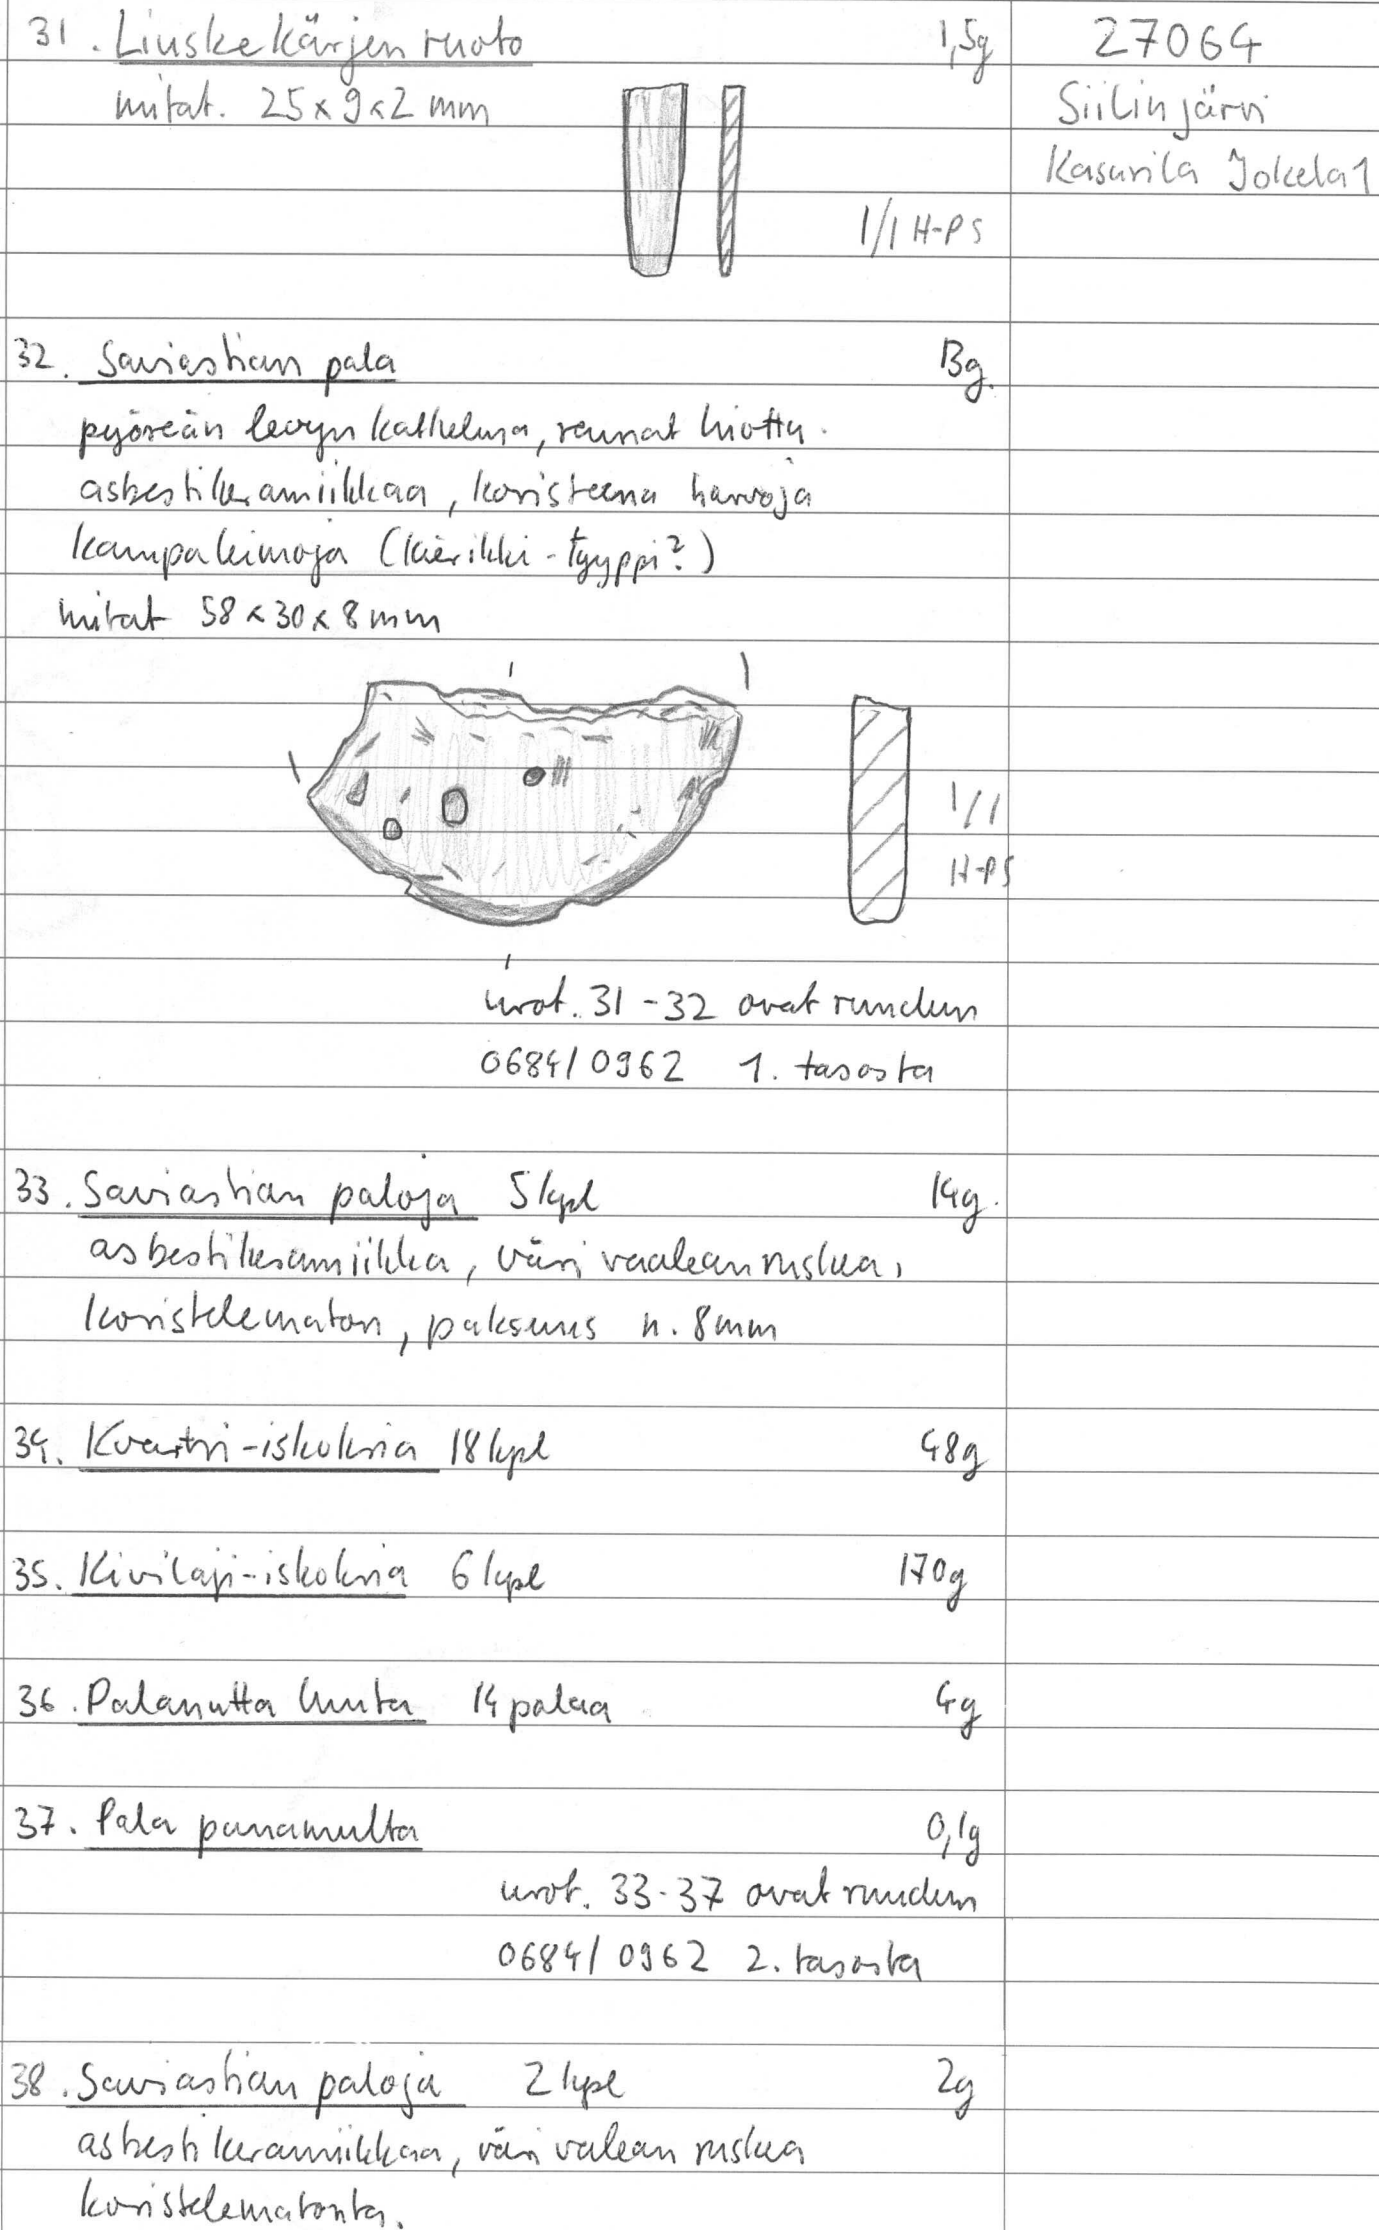 31. Liuskekärjen ruoto 1,5g
27064
mitat. 25x9x2 mm
Siilinjärvi
Kasurila Jokela 1
1/1 H-PS
32. Saviastian pala 13g.
pyöreän levyn katkelma, reunat hiottu.
asbestikeramiikkaa, koristeena harvoja
kampaleimoja (kierikki-tyyppi?)
mitat 58x30x8mm
1/1
H-PS
nrot. 31-32 ovat ruudun
0684/0962 1. tasosta
33. Saviastian paloja 5 kpl 14g.
asbestikeramiikka, väri vaaleanruskea,
koristelematon, paksuus n. 8mm
34. Kvartsi-iskoksia 18 kpl 48g
35. Kivilaji-iskoksia 6 kpl 170g
36. Palanutta luuta 14 palaa 4g
37. Pala punamulta 0,1g
nrot. 33-37 ovat ruudun
0684/0962 2. tasosta
38. Saviastian paloja 2 kpl 2g
asbestikeramiikkaa, väri valean ruskea
koristelematonta.